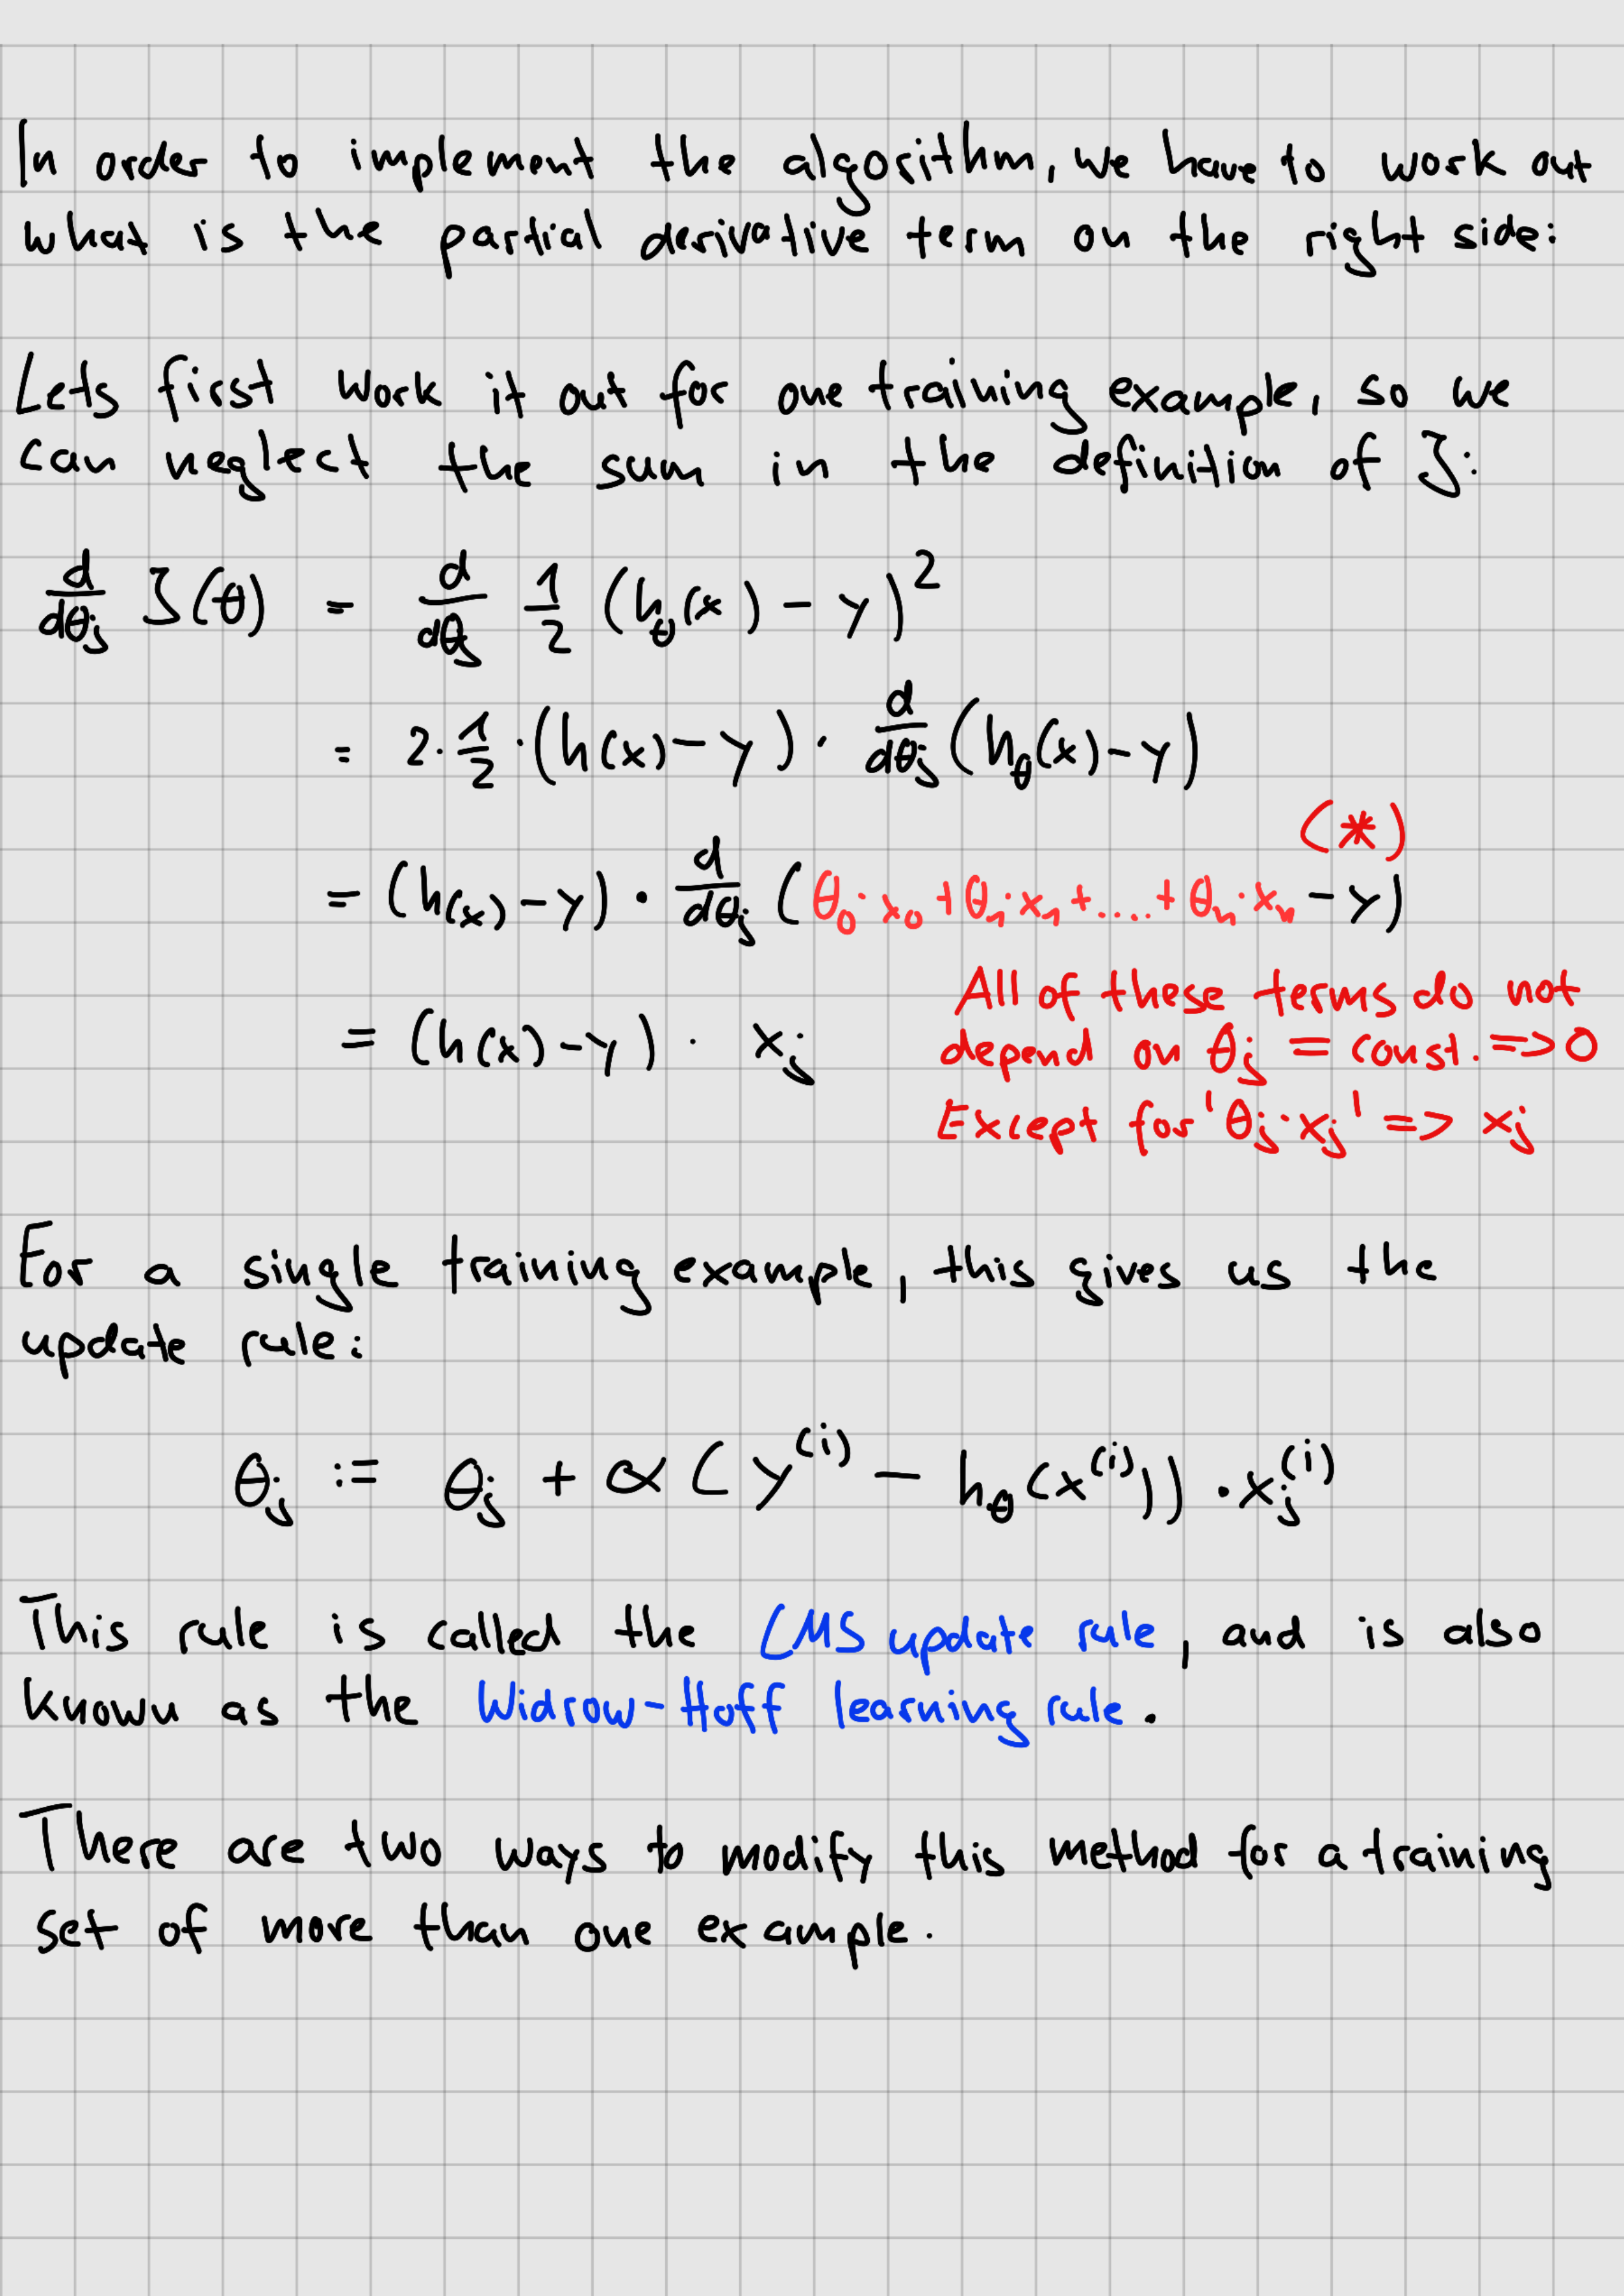 In order to implement the algorithm, we have to work out
what is the partial derivative term on the right side:
Lets first work it out for one training example, so we
can neglect the sum in the definition of J:
d/dθj J(θ) = d/dθj 1/2 (hθ(x) - y)²
= 2 · 1/2 · (h(x) - y) · d/dθj (hθ(x) - y)
(*)
= (h(x) - y) · d/dθj (θ₀·x₀ + θ₁·x₁ + .... + θₙ·xₙ - y)
= (h(x) - y) · xj
All of these terms do not
depend on θj = const. => 0
Except for 'θj·xj' => xj
For a single training example, this gives us the
update rule:
θj := θj + α (y⁽ⁱ⁾ - hθ(x⁽ⁱ⁾)) · xj⁽ⁱ⁾
This rule is called the LMS update rule, and is also
known as the Widrow-Hoff learning rule.
There are two ways to modify this method for a training
set of more than one example.